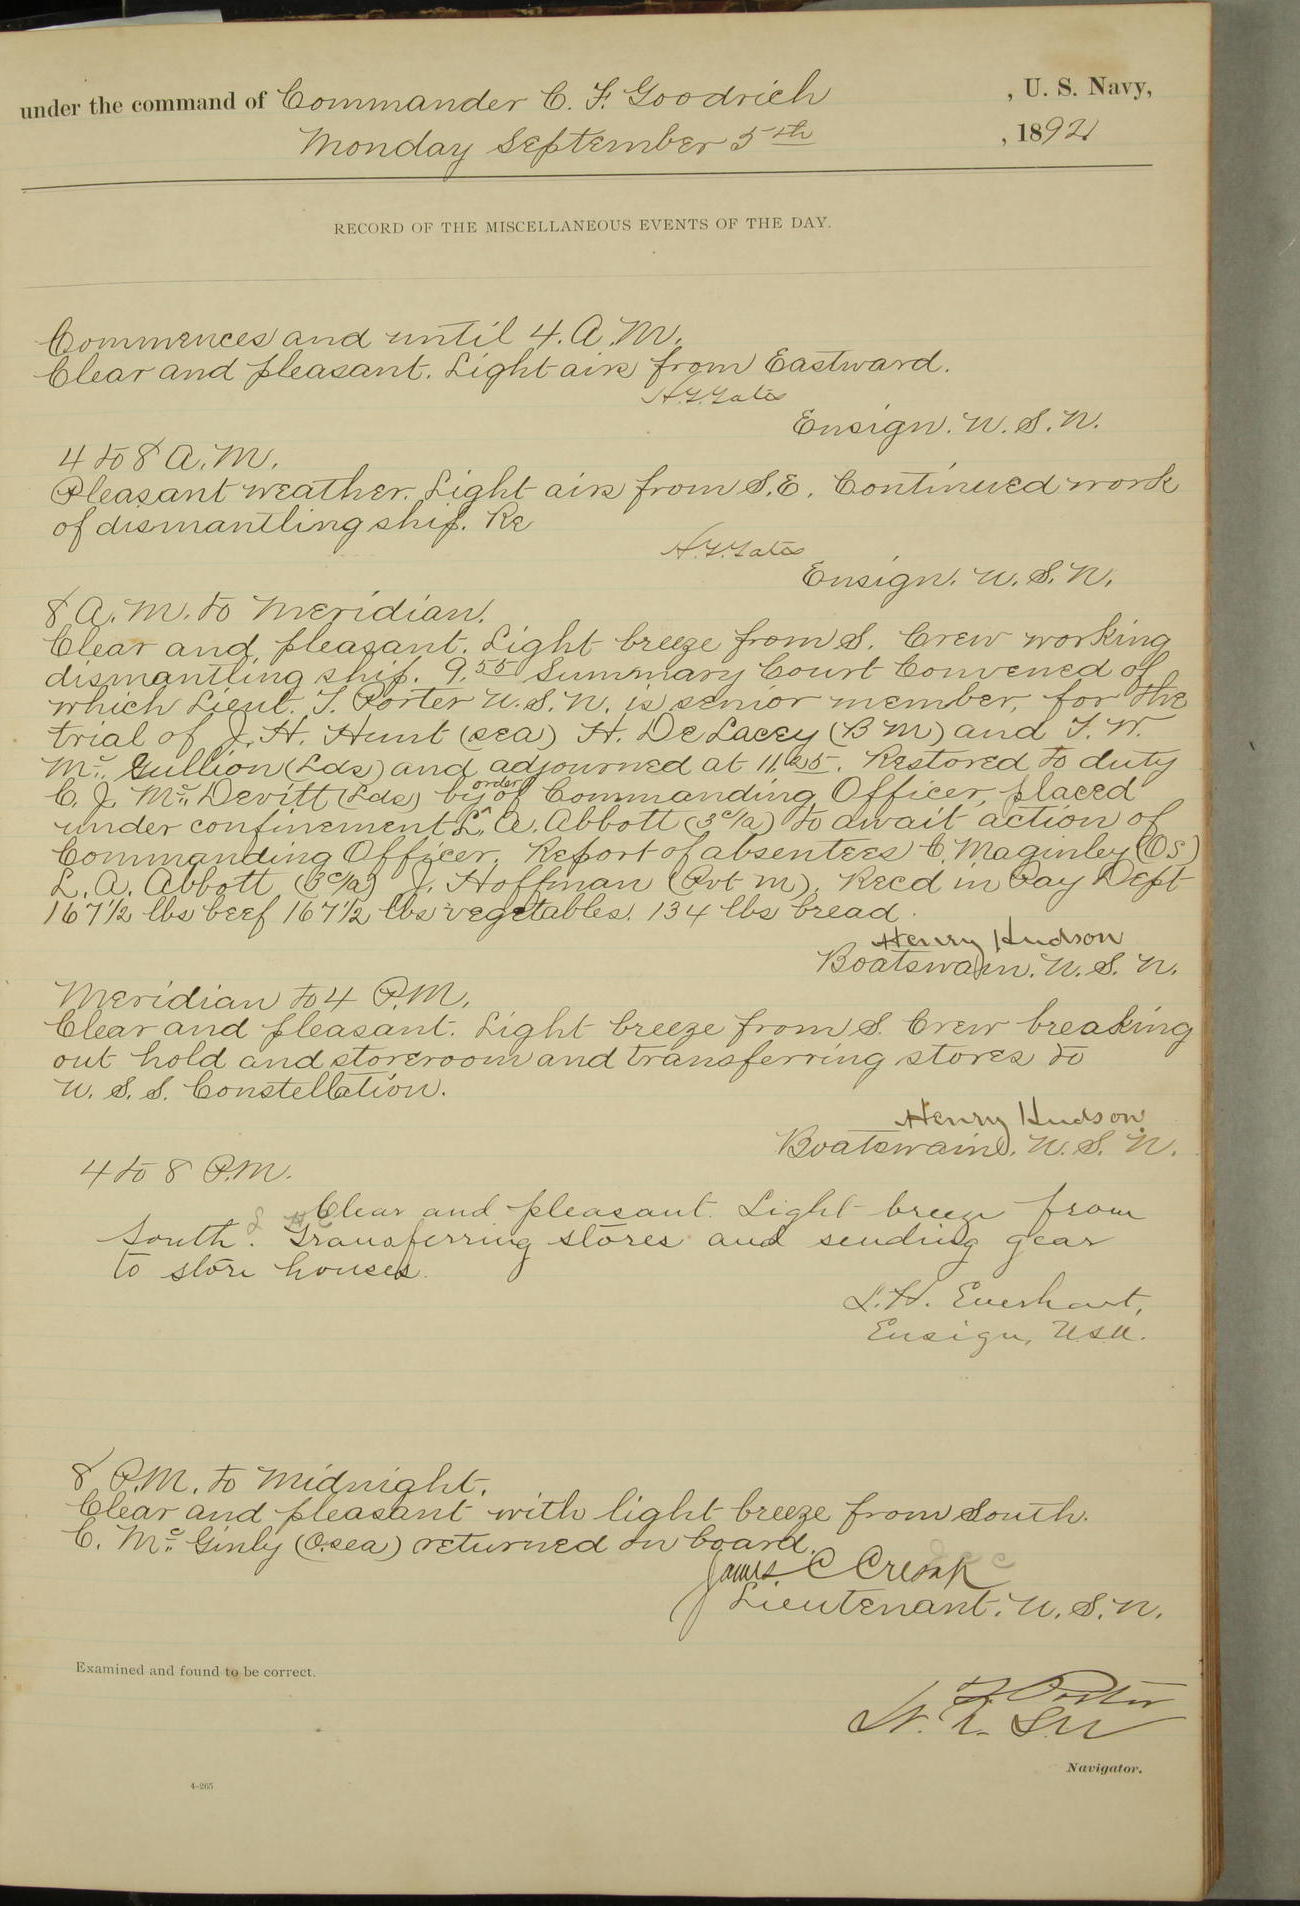 under the command of Commander C. F. Goodrich , U. S. Navy,
Monday September 5th , 1892
RECORD OF THE MISCELLANEOUS EVENTS OF THE DAY.
Commences and until 4. A.M.
Clear and pleasant. Light airs from Eastward.
H.G. Gates
Ensign. U. S. N.
4 to 8 A.M.
Pleasant weather. Light airs from S.E. Continued work
of dismantling ship. Re
H.G. Gates
Ensign. U. S. N.
8 A.M. to Meridian.
Clear and pleasant. Light breeze from S. Crew working
dismantling ship. 9.55 Summary Court Convened of
which Lieut. T. Porter U.S.N. is senior member, for the
trial of J. H. Hunt (sea) H. De Lacey (B M) and T. W.
Mc. Gullion (Lds) and adjourned at 11.25. Restored to duty
C. J. Mc. Devitt (Lds) by order of Commanding Officer, placed
under confinement L. A. Abbott (3 c/a) to await action of
Commanding Officer. Report of absentees C. Maginley (OS)
L. A. Abbott (3 c/a) J. Hoffman (Pvt m). Recd in Pay Dept
167 1/2 lbs beef 167 1/2 lbs vegetables. 134 lbs bread.
Henry Hudson
Boatswain. U. S. N.
Meridian to 4 P.M.
Clear and pleasant. Light breeze from S. Crew breaking
out hold and storeroom and transferring stores to
U. S. S. Constellation.
Henry Hudson
Boatswain. U. S. N.
4 to 8 P.M.
Clear and pleasant. Light breeze from
South. Transferring stores and sending gear
to store houses.
L. H. Everhart,
Ensign, USN.
8 P.M. to Midnight.
Clear and pleasant with light breeze from South.
C. Mc. Ginly (O.sea) returned on board.
James C Cresap
Lieutenant. U. S. N.
Examined and found to be correct.
T Porter
Navigator.
4-265